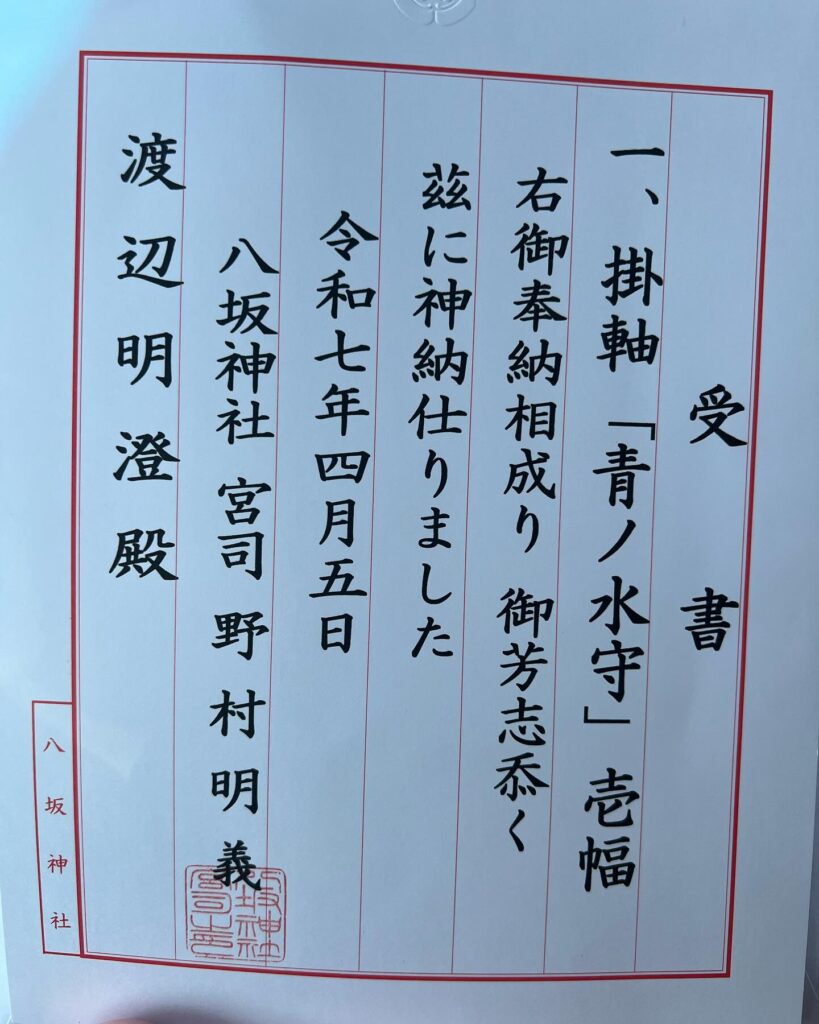 受書
一、掛軸「青ノ水守」壱幅
右御奉納相成り 御芳志忝く
茲に神納仕りました
令和七年四月五日
八坂神社 宮司 野村明義
渡辺明澄殿
八坂神社
八坂神社宮司之印